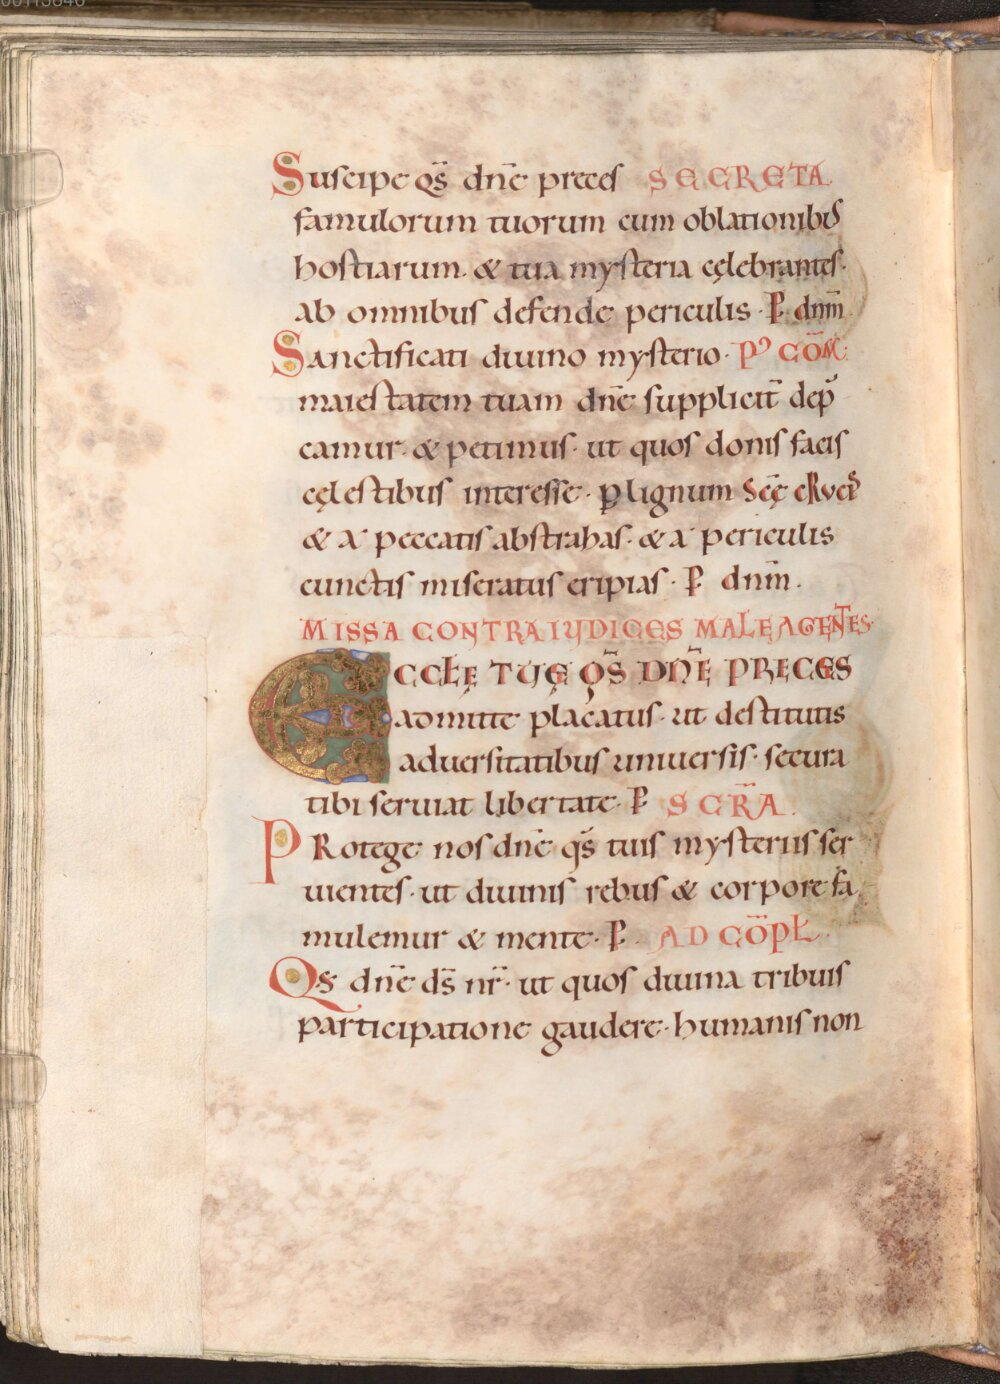 Suscipe qs̄ dn̄e preces SECRETA
famulorum tuorum cum oblationibus
hostiarum. & tua mysteria cęlebrantes.
ab omnibus defende periculis. P̄ dnm̄
Sanctificati diuino mysterio. P' COM̄:
maiestatem tuam dn̄e supplicit̄ dep̄
camur. & petimus. ut quos donis facis
cęlestibus interesse. ꝑ lignum S̄c̄ę cRucis
& a peccatis abstrahas. & a periculis
cunctis miseratus eripias. P̄ dnm̄.
MISSA CONTRA IUDICES MALE AGENTES.
ECCLĘ TUĘ QS̄ DN̄E PRECES
admitte placatus. ut destitutis
aduersitatibus uniuersis. secura
tibi seruiat libertate. P̄ SCR̄A.
PRotege nos dn̄e qs̄ tuis mysteriis ser
uientes. ut diuinis rebus & corpore fa
mulemur & mente. P̄. AD COP̄Ł.
Qs dn̄e ds̄ nr̄. ut quos diuina tribuis
participatione gaudere. humanis non